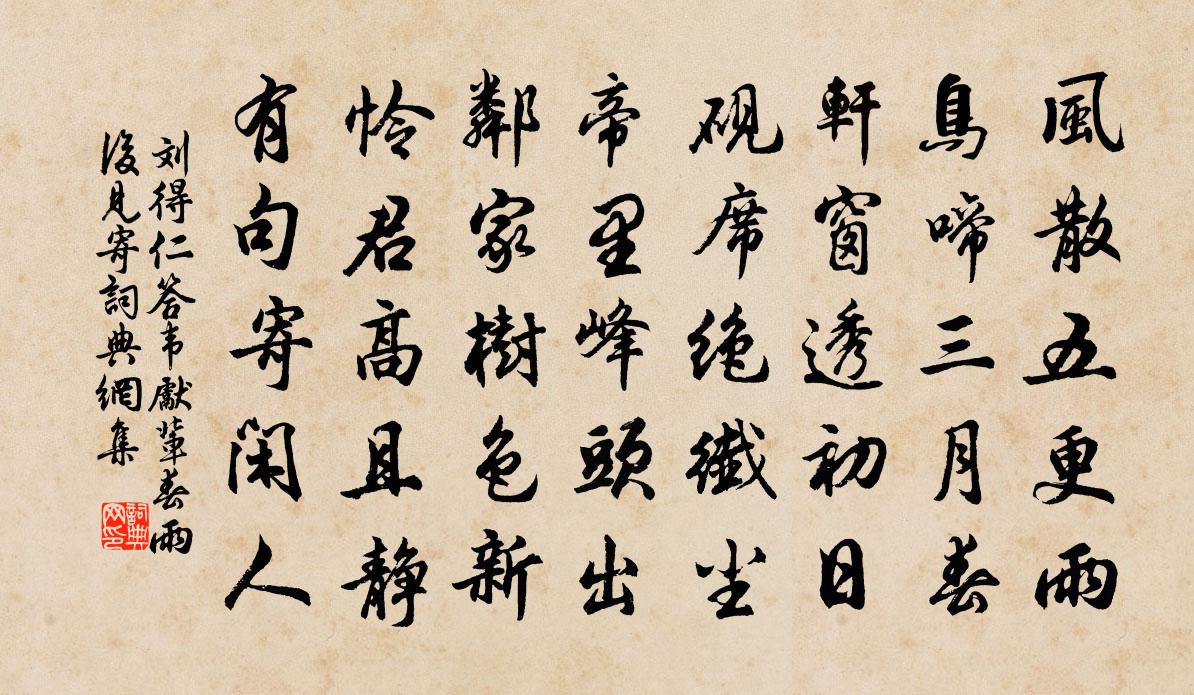 風散五更雨
鳥啼三月春
軒窗透初日
硯席絶纖尘
帝里峰頭出
鄰家樹色新
怜君高且静
有句寄閑人
刘得仁答韦獻輩春雨
後見寄詞典網集
詞典
网印